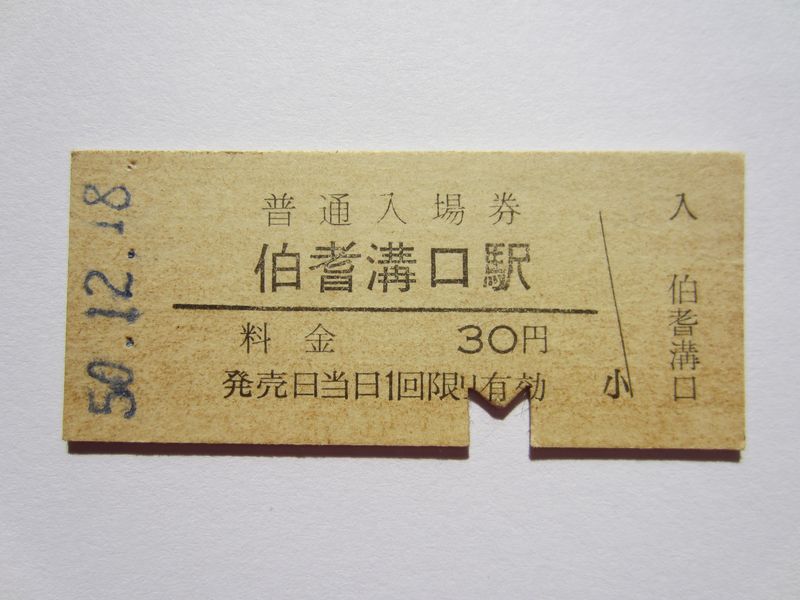 50.12.18
普通入場券
伯耆溝口駅
料金 30円
発売日当日1回限り有効
小
入
伯耆溝口